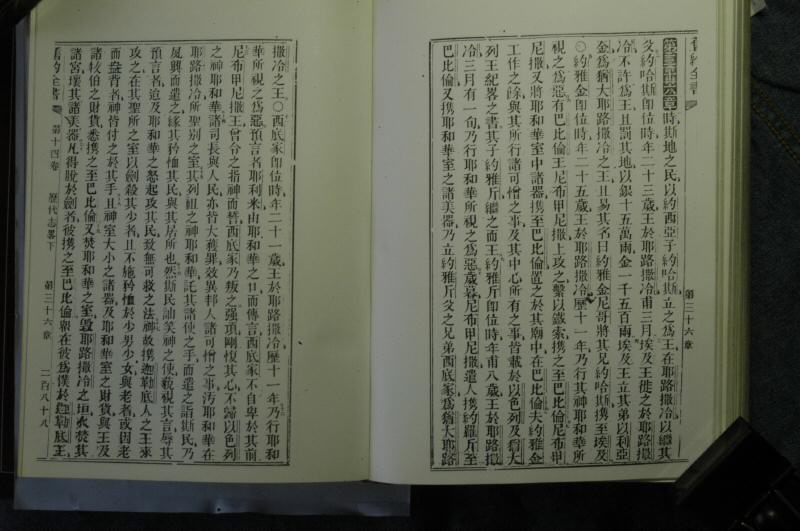 舊約全書
第三十六章
第三十六章時斯地之民以約西亞子約哈斯立之爲王在耶路撒冷以繼其
父約哈斯卽位時年二十三歲王於耶路撒冷甫三月埃及王徙之於耶路撒
冷不許爲王且罰其地以銀十五萬兩金一千五百兩埃及王立其弟以利亞
金爲猶大耶路撒冷之王且易其名曰約雅金尼哥將其兄約哈斯携至埃及
○約雅金卽位時年二十五歲王於耶路撒冷歷十一年乃行其神耶和華所
視之爲惡有巴比倫王尼布甲尼撒上攻之繫以鐵索携之至巴比倫尼布甲
尼撒又將耶和華室中諸器携至巴比倫置之於其廟中在巴比倫夫約雅金
工作之餘與其所行諸可憎之事及其中心所有之事皆載於以色列及猶大
列王紀畧之書其子約雅斤繼之而王約雅斤卽位時年甫八歲王於耶路撒
冷三月有一旬乃行耶和華所視之爲惡歲暮尼布甲尼撒遣人携約雅斤至
巴比倫又携耶和華室之諸美器乃立約雅斤父之兄弟西底家爲猶大耶路
撒冷之王○西底家卽位時年二十一歲王於耶路撒冷歷十一年乃行耶和
華所視之爲惡預言者耶利米由耶和華之口而傳言西底家不自卑於其前
尼布甲尼撒王曾令之指神而誓西底家乃叛之强項剛愎其心不歸以色列
之神耶和華諸司長與人民亦皆大獲罪效異邦人諸可憎之事污耶和華在
耶路撒冷所聖別之室其列祖之神耶和華託其諸使之手而遣之諧斯民乃
夙興而遣之緣其矜恤其民與其居所也然斯民訕笑神之使藐視其言辱其
預言者迨及耶和華之怒起攻其民致無可救之法神故携迦勒底人之王來
攻之在其聖所之室以劍殺其少者且不施矜恤於少男少女與老者或因老
而傴背者神皆付之於其手且神室大小之諸器及耶和華室之財貨與王及
諸牧伯之財貨悉携之至巴比倫又焚耶和華之室毀耶路撒冷之垣火焚其
諸宮壞其諸美器凡得脫於劍者彼携之至巴比倫羣在彼爲僕於迦勒底王
舊約全書
第十四卷
歷代志畧下
第三十六章
二百八十八